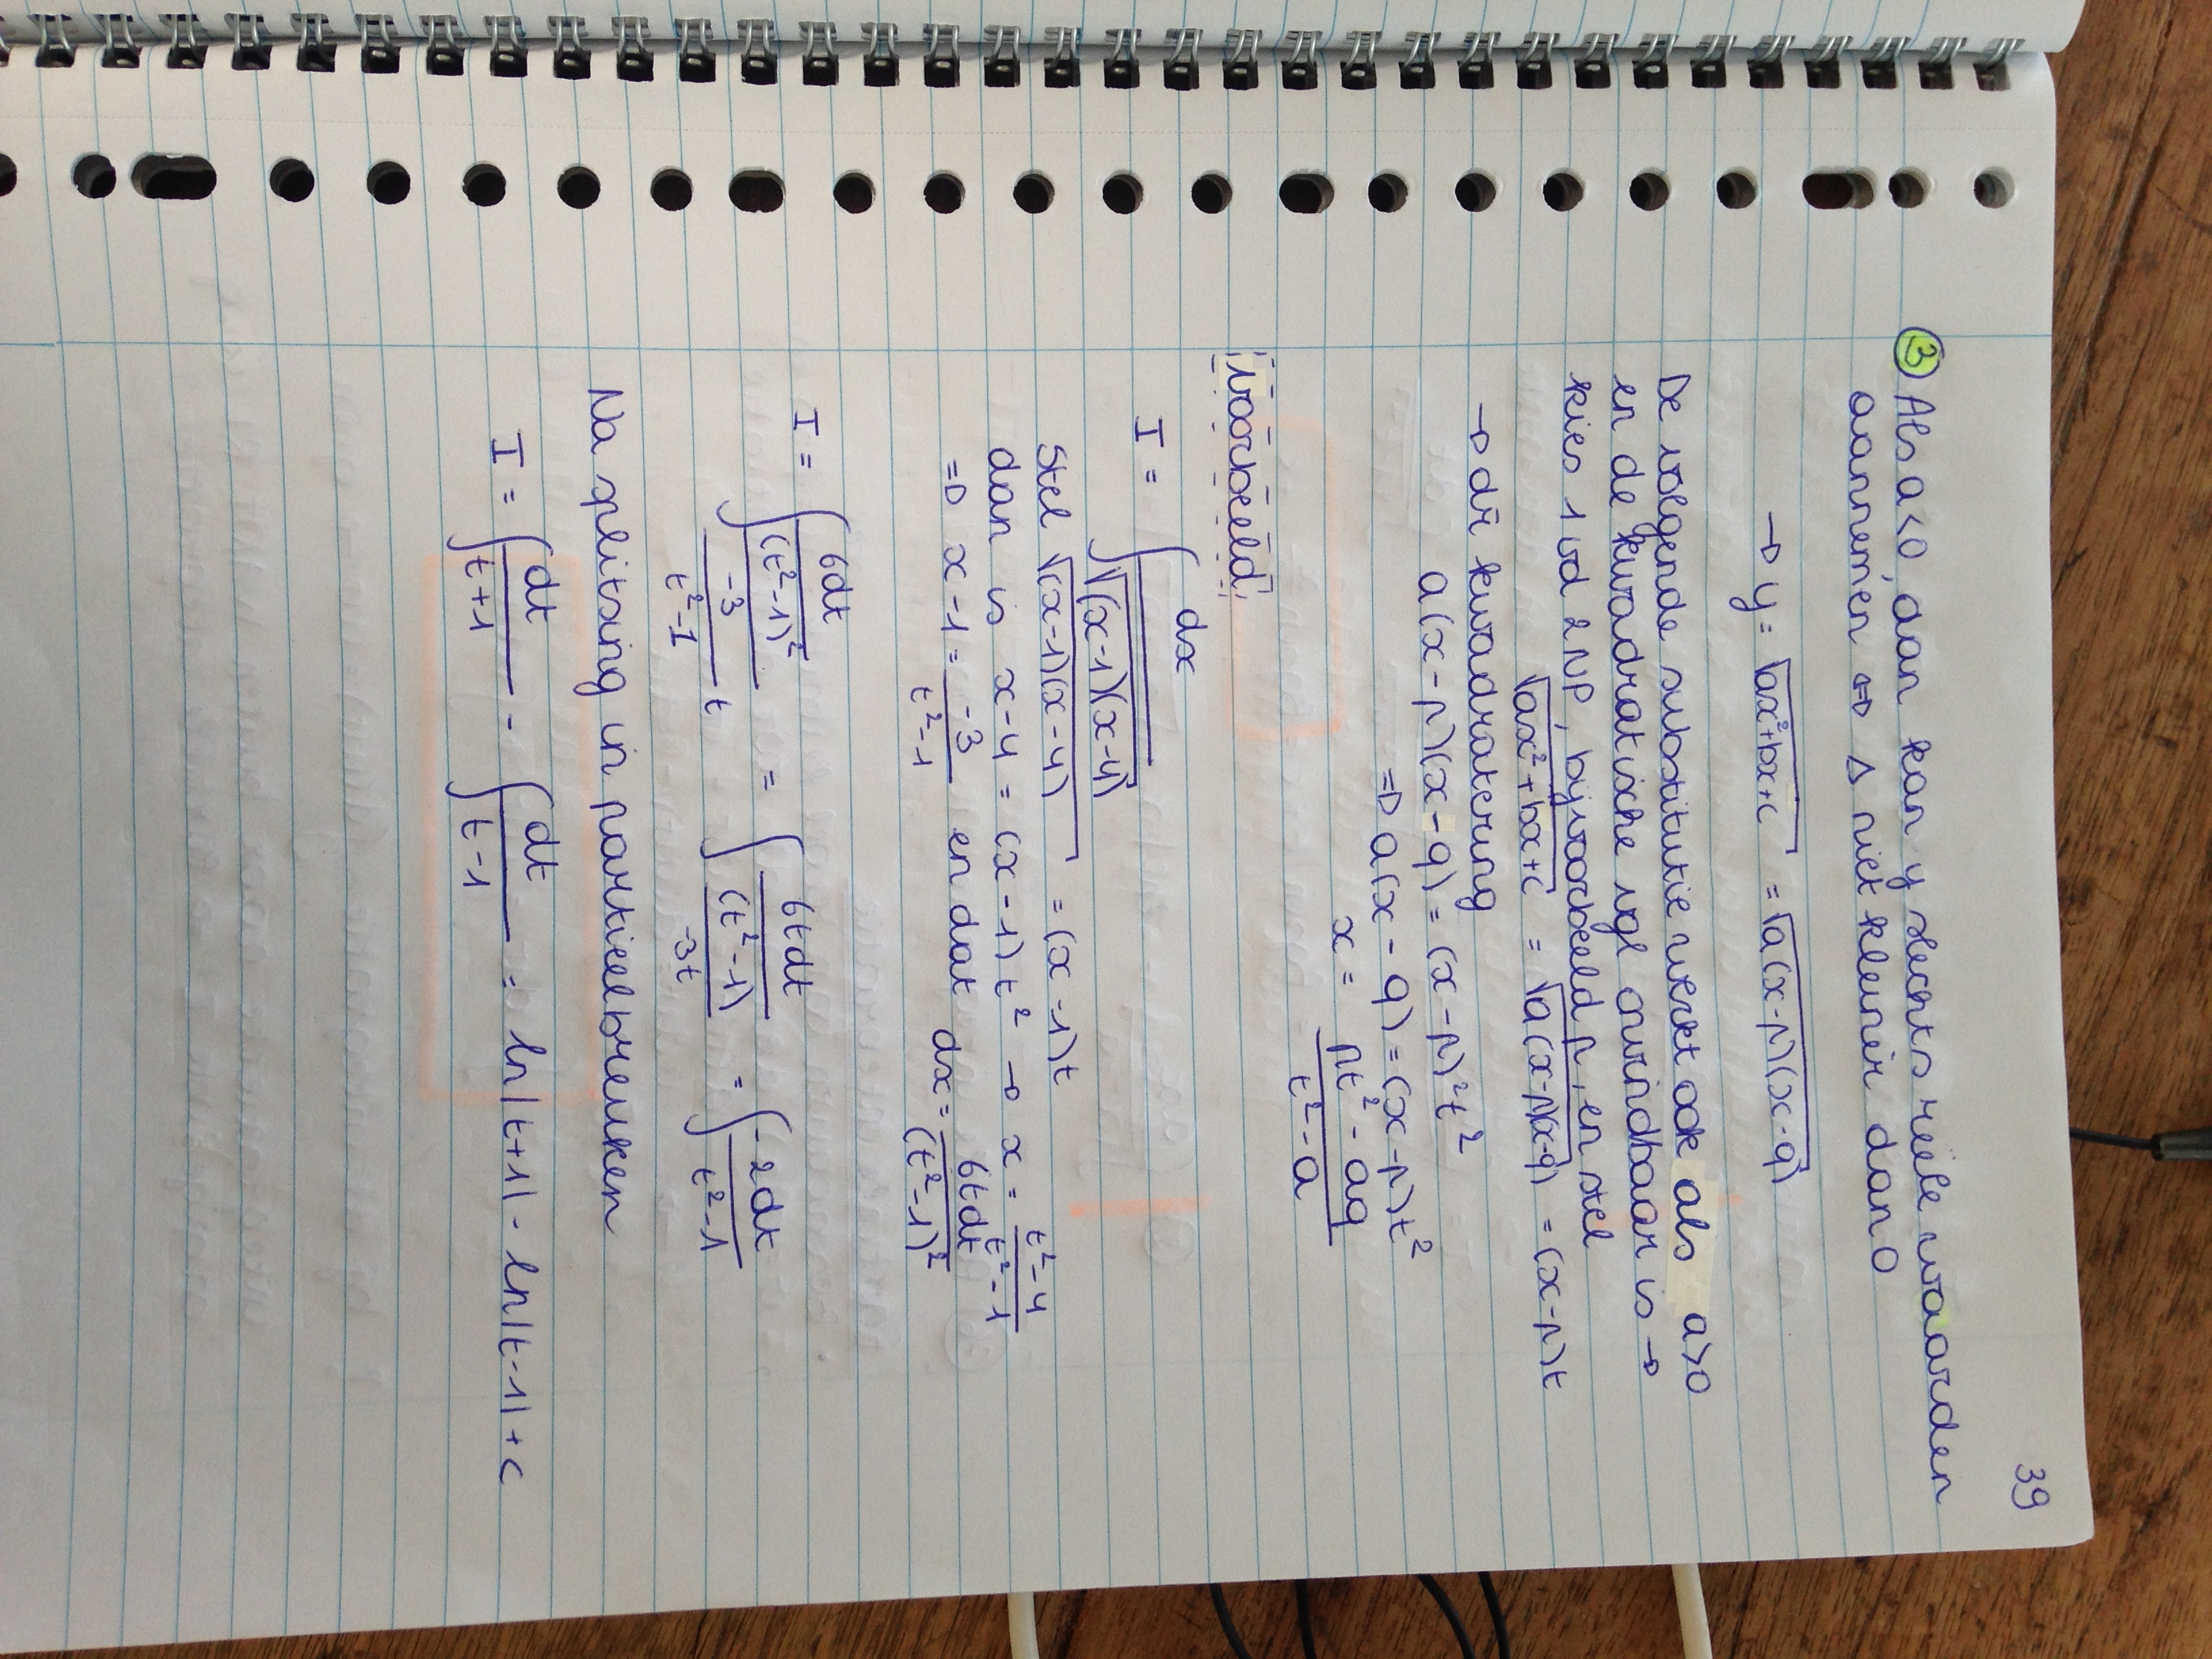 39
③ Als a<0, dan kan y slechts reële waarden
aannemen ⇔ Δ niet kleiner dan 0
→ y = √(ax²+bx+c) = √(a(x-p)(x-q))
De volgende substitutie werkt ook als a>0
en de kwadratische vgl ontbindbaar is →
kies 1 vd 2 NP, bijvoorbeeld p, en stel
√(ax²+bx+c) = √(a(x-p)(x-q)) = (x-p)t
→ dr kwadratering
a(x-p)(x-q) = (x-p)²t²
⇒ a(x-q) = (x-p)t²
x = (pt² - aq)/(t² - a)
voorbeeld
I = ∫ dx/√((x-1)(x-4))
Stel √((x-1)(x-4)) = (x-1)t
dan is x-4 = (x-1)t² → x = (t²-4)/(t²-1)
⇒ x-1 = -3/(t²-1) en dat dx = 6tdt/(t²-1)²
I = ∫ (6dt/(t²-1)²)/((-3/(t²-1))t) = ∫ (6tdt/(t²-1))/(-3t) = ∫ -2dt/(t²-1)
Na splitsing in partieelbreuken
I = ∫ dt/(t+1) - ∫ dt/(t-1) = ln|t+1| - ln|t-1| + c